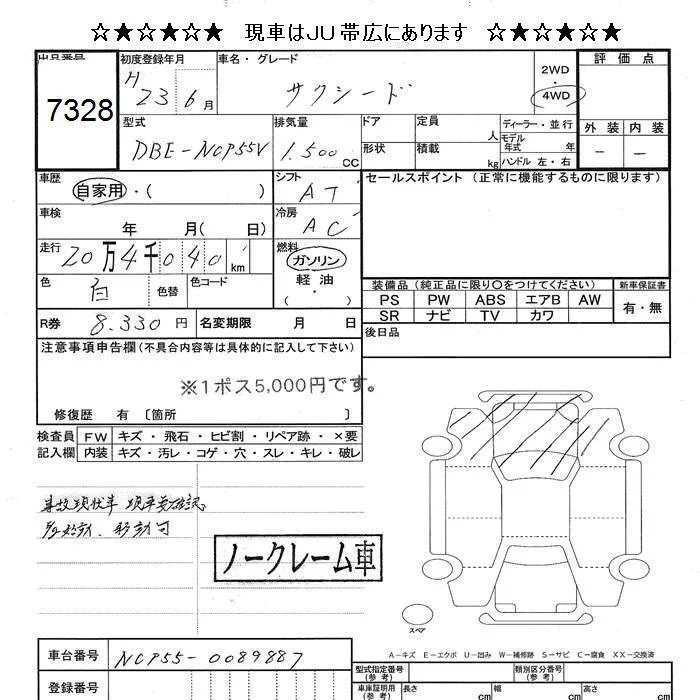 ☆★☆★☆★ 現車はJU帯広にあります ☆★☆★☆★
出品番号
7328
初度登録年月
H 23 6 月
車名・グレード
サクシード
2WD
4WD
評価点
型式
DBE-NCP55V
排気量
1.500 CC
ドア
定員
人
ディーラー・並行
モデル年式 年
形状
積載
kg
ハンドル 左・右
外装 内装
- -
車歴
自家用・( )
シフト
AT
セールスポイント (正常に機能するものに限ります)
車検
年 月( 日)
冷房
AC
走行
20万4千040 km
燃料
ガソリン
軽油
・( )
色
白
色替
色コード
装備品(純正品に限り○をつけてください)
新車保証書
PS PW ABS エアB AW
SR ナビ TV カワ
有・無
R券 8.330 円
名変期限 月 日
後日品
注意事項申告欄(不具合内容等は具体的に記入して下さい)
※1ポス5,000円です。
修復歴 有〔箇所 〕
検査員 FW キズ・飛石・ヒビ割・リペア跡・×要
記入欄 内装 キズ・汚レ・コゲ・穴・スレ・キレ・破レ
事故現状車 現車要確認。
移動可
ノークレーム車
スペア
A-キズ E-エクボ U-凹み W-補修跡 S-サビ C-腐食 XX-交換済
車台番号 NCP55-0089887
登録番号
型式指定番号(参考)
類別区分番号(参考)
車庫証明用(参考)
長さ cm
幅 cm
高さ cm